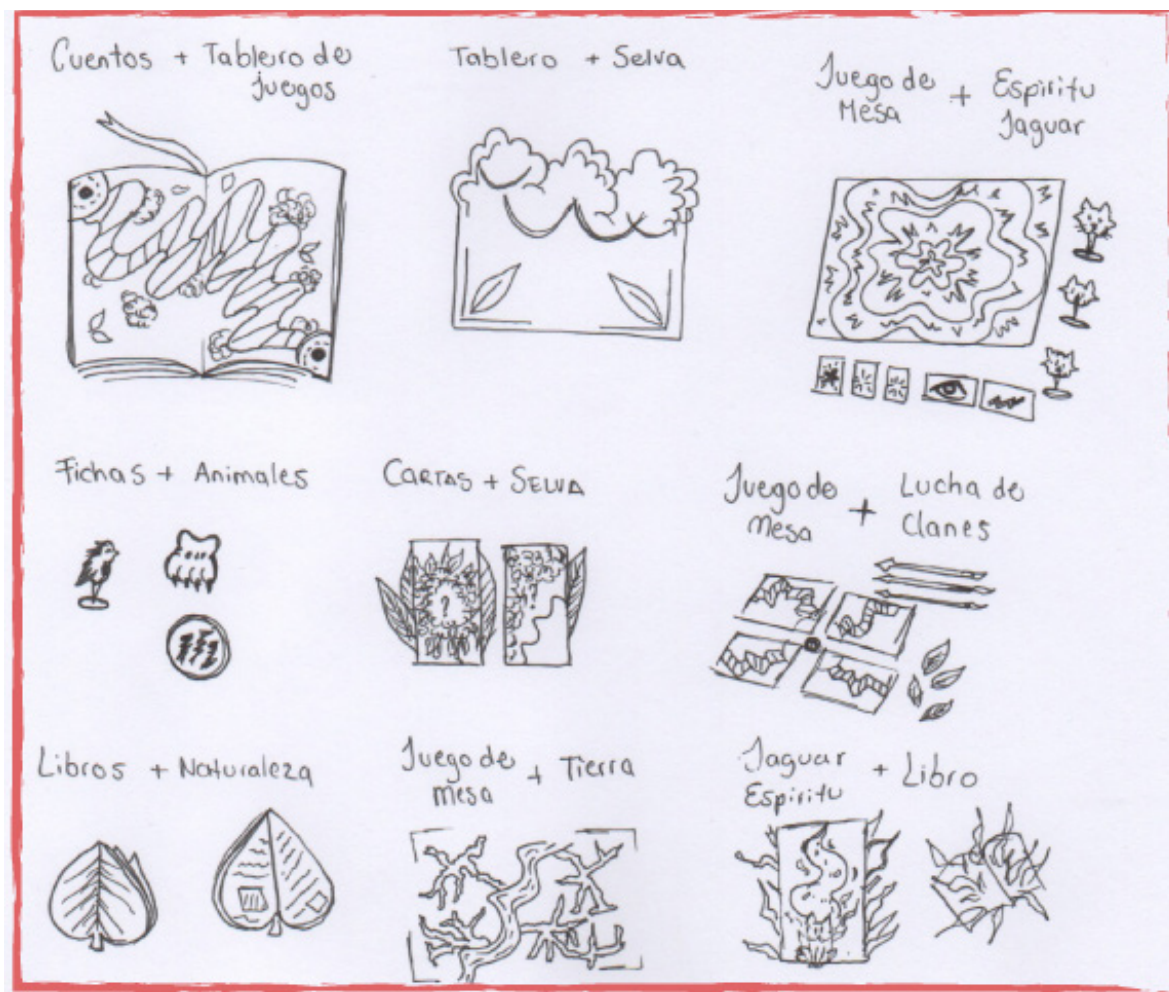 Cuentos + Tablero de
Juegos
Tablero + Selva
Juego de
Mesa + Espiritu
Jaguar
Fichas + Animales
CARTAS + SELVA
Juego de
Mesa + Lucha de
Clanes
Libros + Naturaleza
Juego de
mesa + Tierra
Jaguar
Espiritu + Libro